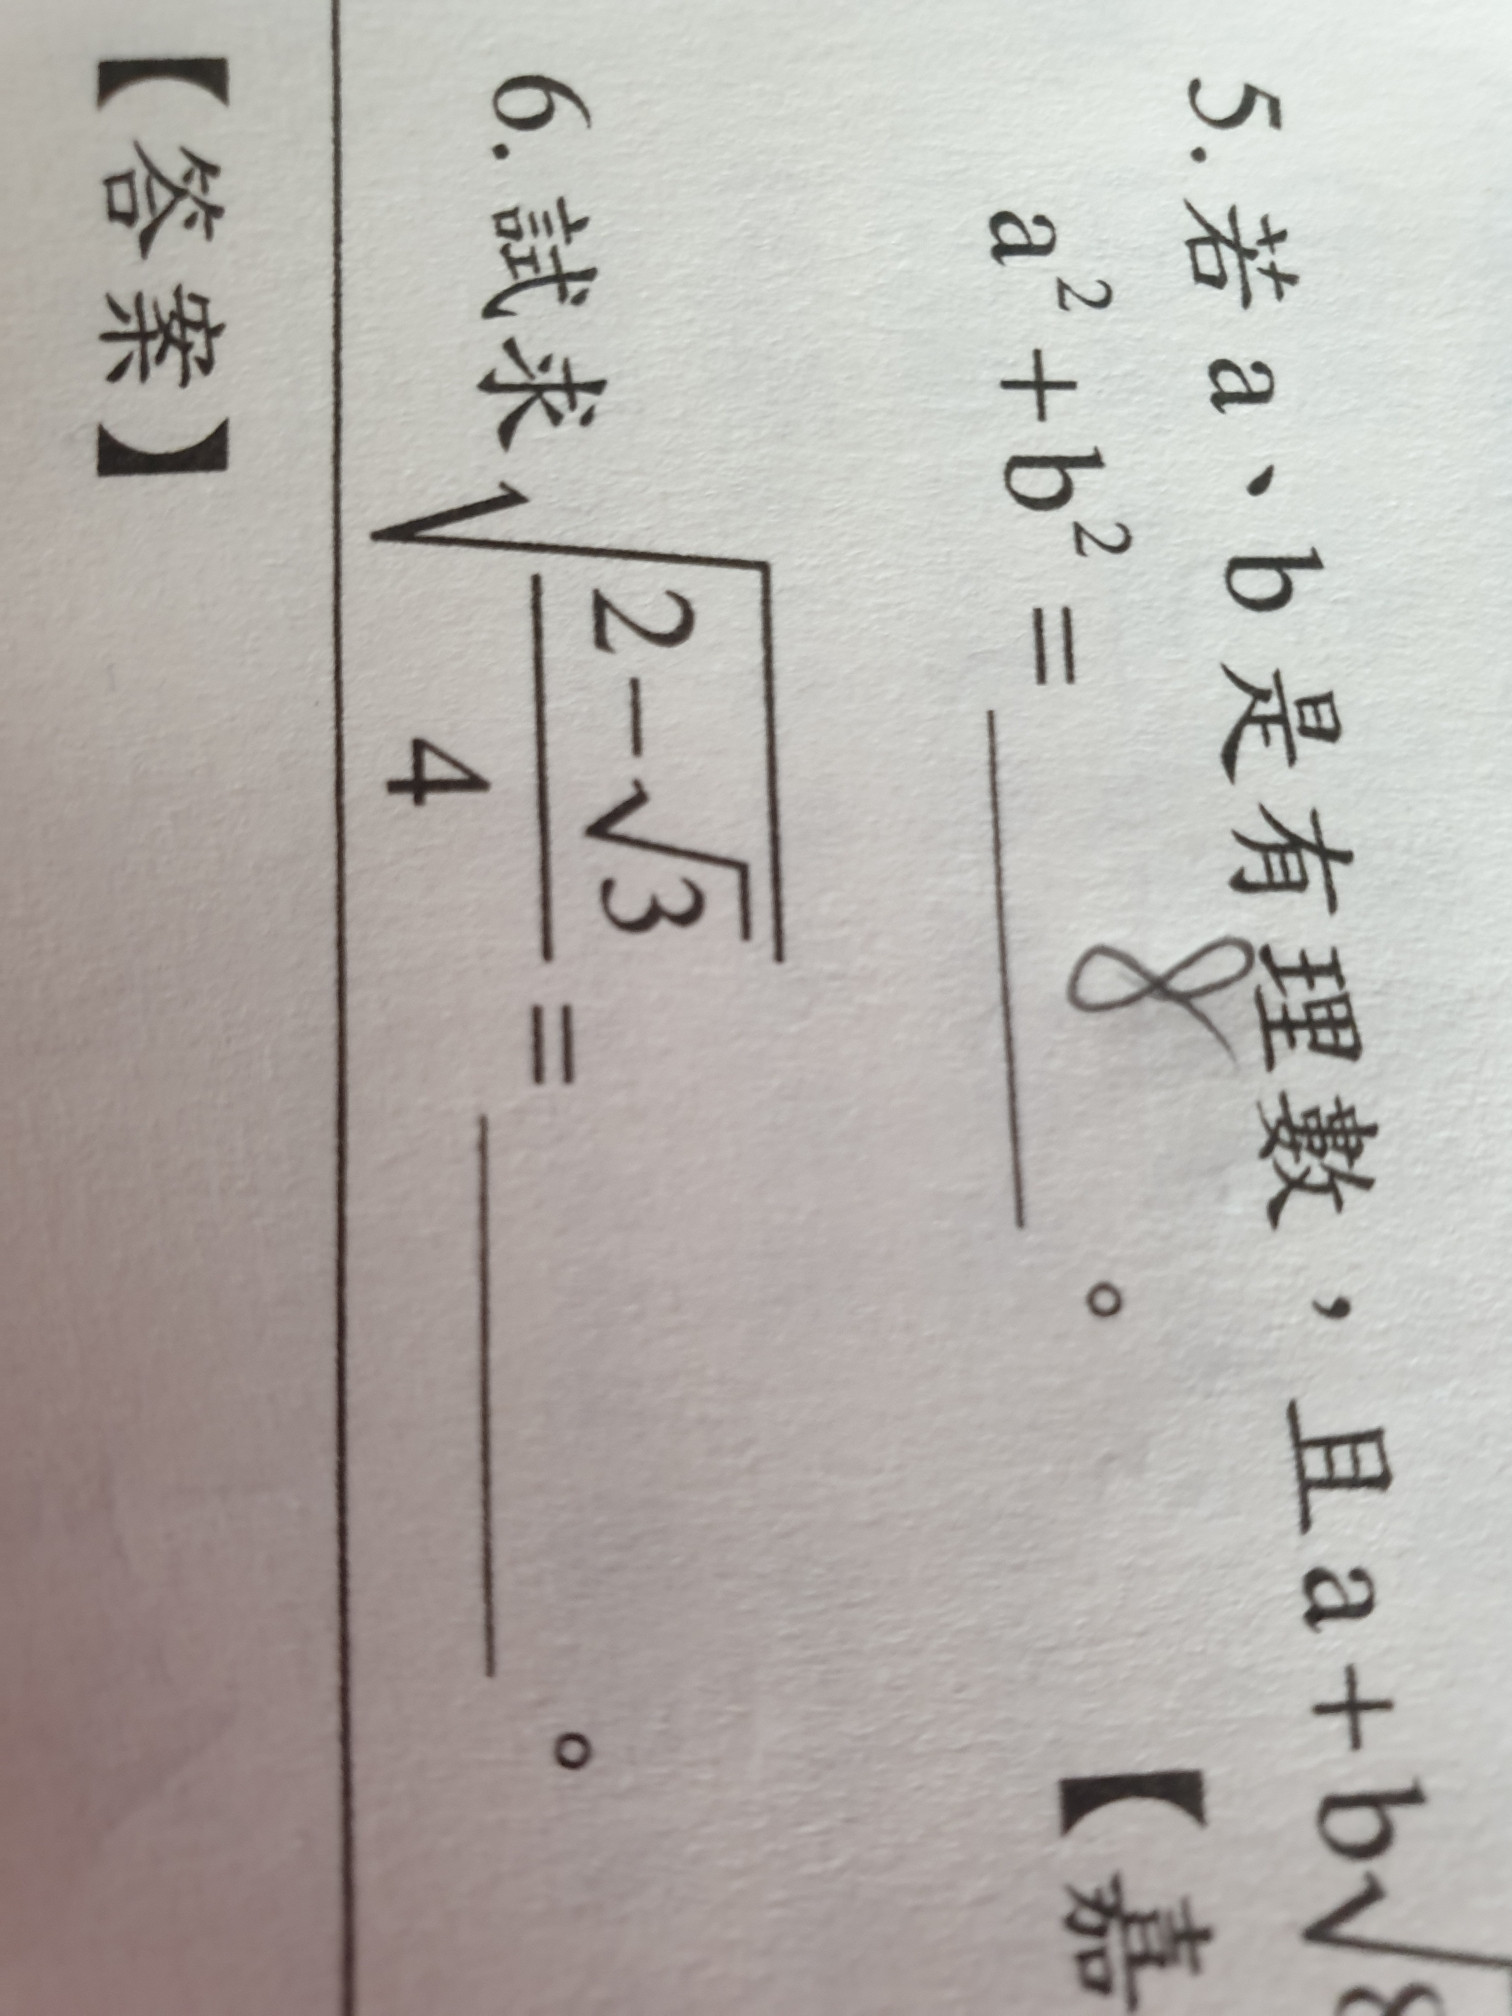 5. 若 a、b 是有理數，且 a + b√8
a² + b² = 8 。
【嘉
6. 試求 √((2-√3)/4) = ______ 。
【答案】